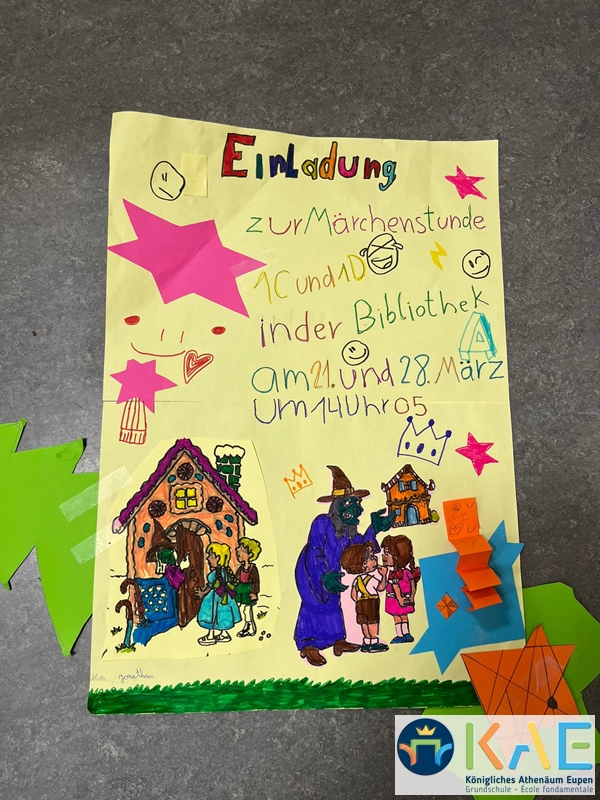 EinLadung
zur Märchenstunde
1C und 1D
in der Bibliothek
am 21. und 28. März
um 14 Uhr 05
Jonathan
KAE
Königliches Athenäum Eupen
Grundschule - École fondamentale